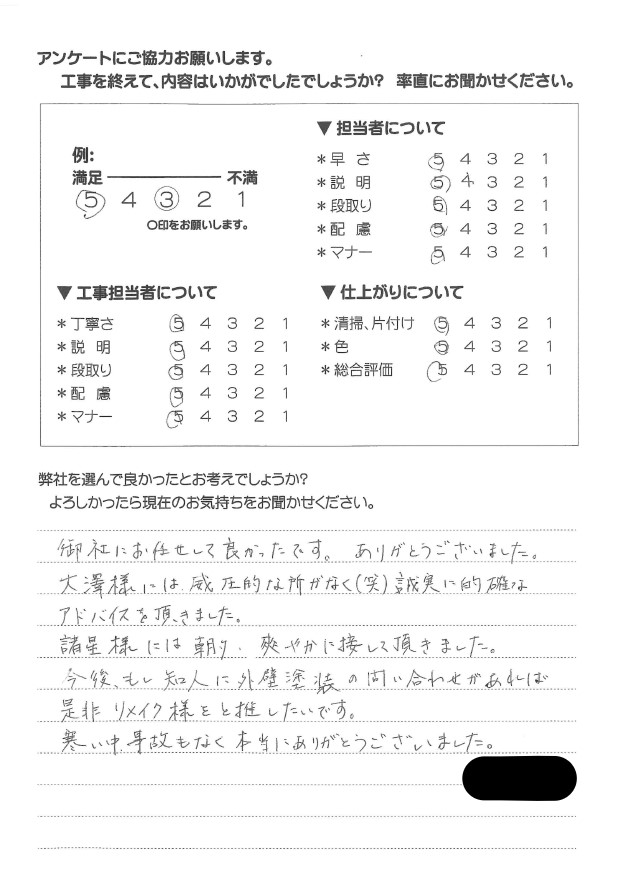 アンケートにご協力お願いします。
工事を終えて、内容はいかがでしたでしょうか? 率直にお聞かせください。
例:
満足 不満
5 4 3 2 1
○印をお願いします。
▼担当者について
*早 さ 5 4 3 2 1
*説 明 5 4 3 2 1
*段取り 5 4 3 2 1
*配 慮 5 4 3 2 1
*マナー 5 4 3 2 1
▼工事担当者について
*丁寧さ 5 4 3 2 1
*説 明 5 4 3 2 1
*段取り 5 4 3 2 1
*配 慮 5 4 3 2 1
*マナー 5 4 3 2 1
▼仕上がりについて
*清掃、片付け 5 4 3 2 1
*色 5 4 3 2 1
*総合評価 5 4 3 2 1
弊社を選んで良かったとお考えでしょうか?
よろしかったら現在のお気持ちをお聞かせください。
御社にお任せして良かったです。 ありがとうございました。
大澤様には威圧的な所がなく(笑)誠実に的確な
アドバイスを頂きました。
諸星様には朝夕、爽やかに接して頂きました。
今後、もし知人に外壁塗装の問い合わせがあれば
是非 リメイク様をと推したいです。
寒い中、事故もなく本当にありがとうございました。